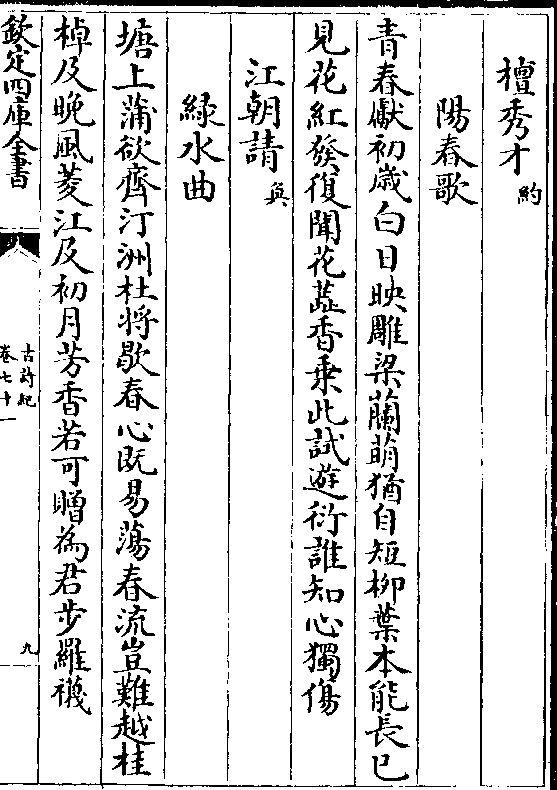 檀秀才約
陽春歌
青春獻初歳白日映雕梁蘭萌猶自短柳葉本能長已
見花紅發復聞花蕋香乘此試遊衍誰知心獨傷
江朝請奐
緑水曲
塘上蒲欲齊汀洲杜将歇春心既易蕩春流豈難越桂
棹及晚風菱江及初月芳香若可贈為君步羅襪
欽定四庫全書
古詩紀
卷七十
九